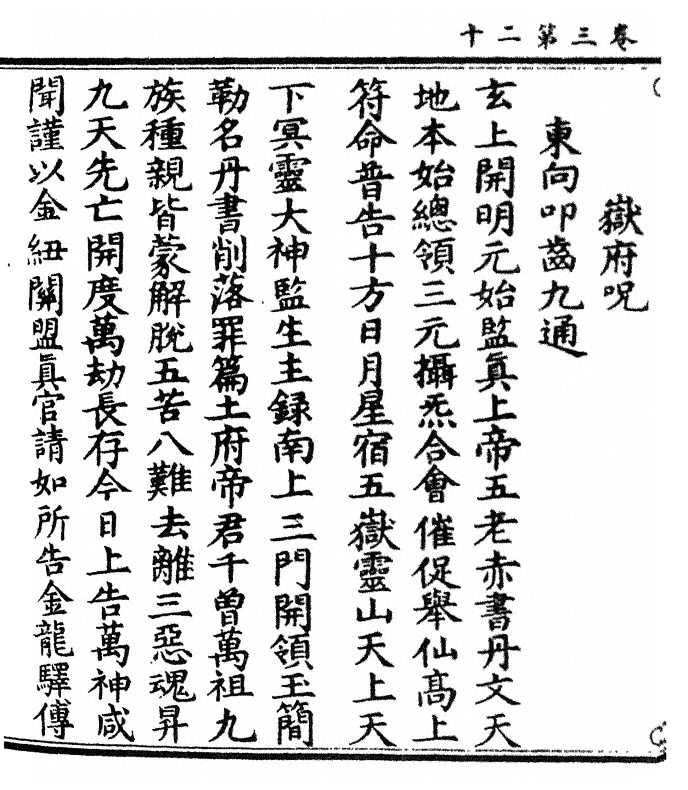 卷三第二十
嶽府呪
東向叩齒九通
玄上開明元始監真上帝五老赤書丹文天
地本始總領三元攝炁合會催促舉仙高上
符命普告十方日月星宿五嶽靈山天上天
下冥靈大神監生主録南上三門開領玉簡
勒名丹書削落罪篇土府帝君千曾萬祖九
族種親皆蒙解脫五苦八難去離三惡魂昇
九天先亡開度萬劫長存今日上告萬神咸
聞謹以金紐關盟真官請如所告金龍驛傳